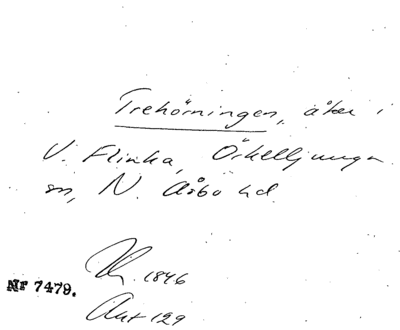 Trehörningen, åker i
V. Flinka, Örkelljunga
sn, N. Åsbo hd.
1846
Nr 7479.
Akt 129